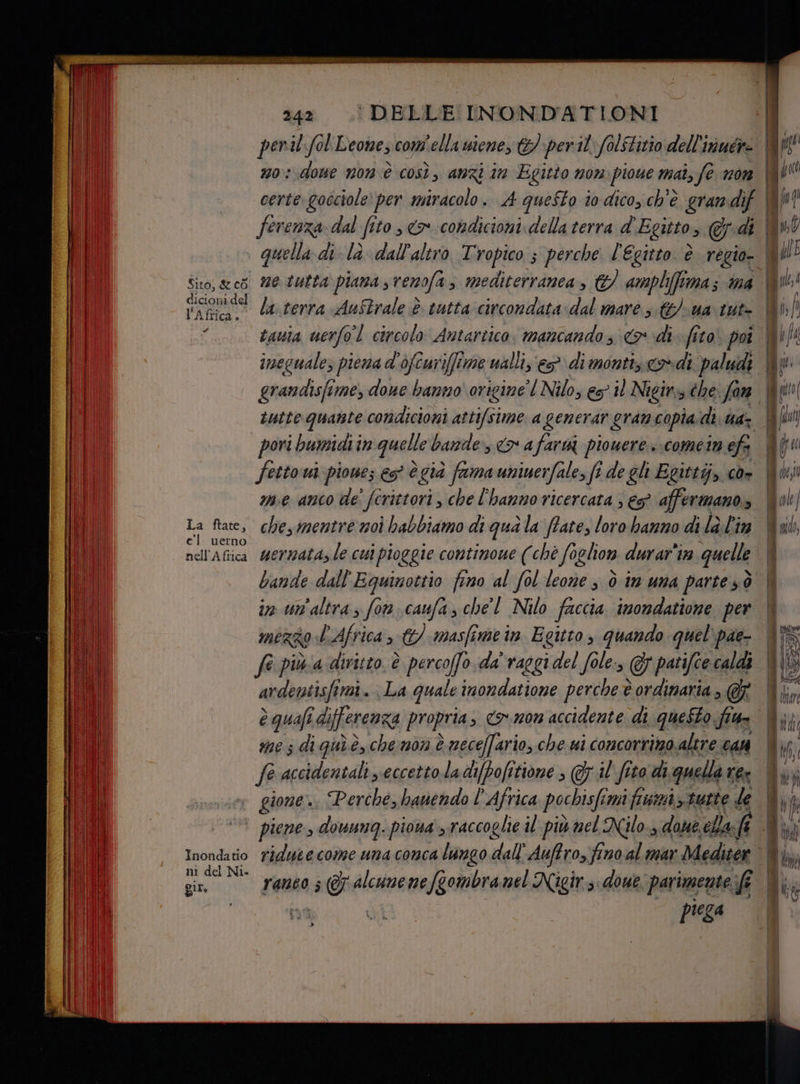 242 DELLE INONDATIONI
per il sol Leone, com'ella uiene, & per il solstitio dell'inuer-
no: doue non è così, anzi in Egitto non pioue mai, se non
certe gocciole per miracolo. A questo io dico, ch'è gran dif
ferenza dal sito, & condicioni della terra d'Egitto, & di
quella di là dall'altro Tropico; perche l'Egitto è regio-
Sito, & cō
dicioni del
l'Africa.
ne tutta piana, renosa, mediterranea, & amplissima; ma
la terra Australe è tutta circondata dal mare, & ua tut-
tauia uerso'l circolo Antartico mancando, & di sito poi
ineguale, piena d'oscurissime ualli, & di monti, & di paludi
grandissime, doue hanno origine'l Nilo, & il Nigir, che son
tutte quante condicioni attissime a generar gran copia di ua-
pori humidi in quelle bande, & a farui piouere. come in ef-
fetto ui pioue; & è già fama uniuersale, sì de gli Egittij, co-
me anco de' scrittori, che l'hanno ricercata, & affermano,
La state,
e'l uerno
nell'Africa
che, mentre noi habbiamo di quà la state, loro hanno di là l'in
uernata, le cui pioggie continoue (chè soglion durar'in quelle
bande dall'Equinottio fino al sol leone, ò in una parte, ò
in un'altra, son causa, che'l Nilo faccia inondatione per
mezzo l'Africa, & massime in Egitto, quando quel pae-
se più a diritto è percosso da' raggi del sole, & patisce caldi
ardentissimi. La quale inondatione perche è ordinaria, &
è quasi differenza propria, & non accidente di questo fiu-
me; di quì è, che non è necessario, che ui concorrino altre cau
se accidentali, eccetto la dispositione, & il sito di quella re-
gione. Perche, hauendo l'Africa pochissimi fiumi, tutte le
piene, douunq. pioua, raccoglie il più nel Nilo, doue ella se
Inondatio
ni del Ni-
gir.
riduce come una conca lungo dall'Austro, fino al mar Mediter
raneo; & alcune ne sgombra nel Nigir, doue parimente se
piega